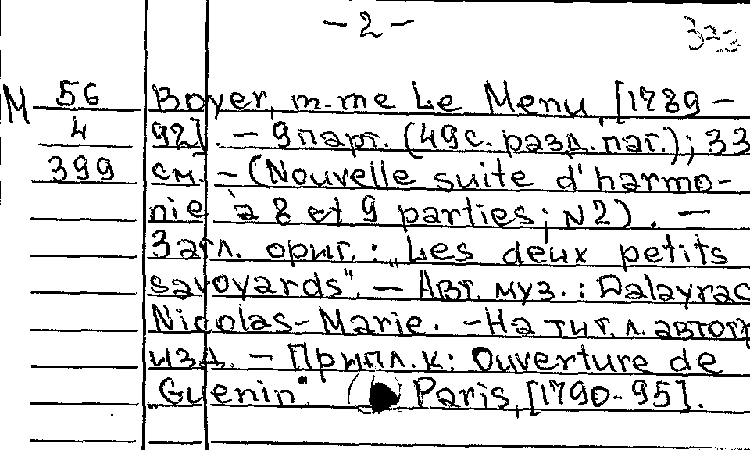 - 2 -
M 56 Boyer, m-me Le Menu, [1789 -
4 92]. - 9 парт. (49 с. разд. паг.); 33
399 см. - (Nouvelle suite d'harmo-
nie à 8 et 9 parties; N2). -
Загл. ориг.: „Les deux petits
savoyards". - Авт. муз.: Dalayrac
Nicolas-Marie. - На тит. л. автогр
изд. - Приплл. к: Ouverture de
„Guenin". Paris, [1790-95].